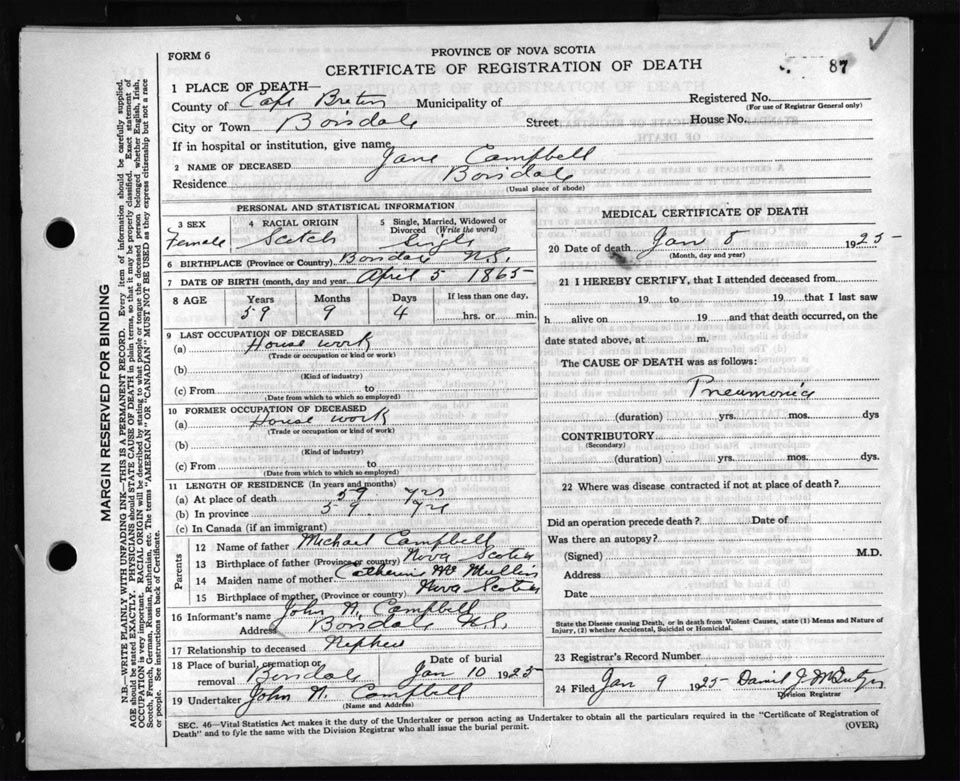 FORM 6
PROVINCE OF NOVA SCOTIA
CERTIFICATE OF REGISTRATION OF DEATH
87
1 PLACE OF DEATH—
County of Cape Breton Municipality of
Registered No.
(For use of Registrar General only)
City or Town Boisdale Street House No.
If in hospital or institution, give name
2 NAME OF DECEASED Jane Campbell
Residence Boisdale
(Usual place of abode)
PERSONAL AND STATISTICAL INFORMATION
3 SEX Female
4 RACIAL ORIGIN Scotch
5 Single, Married, Widowed or Divorced (Write the word) Single
6 BIRTHPLACE (Province or Country) Boisdale N.S.
7 DATE OF BIRTH (month, day and year) April 5 1865
8 AGE Years Months Days If less than one day,
59 9 4 hrs. or min.
9 LAST OCCUPATION OF DECEASED
(a) House work
(Trade or occupation or kind or work)
(b)
(Kind of industry)
(c) From to
(Date from which to which so employed)
10 FORMER OCCUPATION OF DECEASED
(a) House work
(Trade or occupation or kind of work)
(b)
(Kind of industry)
(c) From to
(Date from which to which so employed)
11 LENGTH OF RESIDENCE (In years and months)
(a) At place of death 59 yrs
(b) In province 59 yrs
(c) In Canada (if an immigrant)
Parents
12 Name of father Michael Campbell
13 Birthplace of father (Province or country) Nova Scotia
14 Maiden name of mother Catherine McMullin
15 Birthplace of mother (Province or country) Nova Scotia
16 Informant's name John A. Campbell
Address Boisdale N.S.
17 Relationship to deceased Nephew
18 Place of burial, cremation or removal Boisdale
Date of burial Jan 10 1925
19 Undertaker John A. Campbell
(Name and Address)
MEDICAL CERTIFICATE OF DEATH
20 Date of death Jan 8 1925
(Month, day and year)
21 I HEREBY CERTIFY, that I attended deceased from
19 to 19 that I last saw
h alive on 19 and that death occurred, on the
date stated above, at m.
The CAUSE OF DEATH was as follows:
Pneumonia
(duration) yrs. mos. dys
CONTRIBUTORY
(Secondary)
(duration) yrs. mos. dys.
22 Where was disease contracted if not at place of death?
Did an operation precede death? Date of
Was there an autopsy?
(Signed) M.D.
Address
Date
State the Disease causing Death, or in death from Violent Causes, state (1) Means and Nature of
Injury, (2) whether Accidental, Suicidal or Homicidal.
23 Registrar's Record Number
24 Filed Jan 9 1925 Daniel J.
Division Registrar
SEC. 46—Vital Statistics Act makes it the duty of the Undertaker or person acting as Undertaker to obtain all the particulars required in the "Certificate of Registration of
Death" and to fyle the same with the Division Registrar who shall issue the burial permit.
(OVER)
MARGIN RESERVED FOR BINDING
N.B.—WRITE PLAINLY WITH UNFADING INK—THIS IS A PERMANENT RECORD. Every item of information should be carefully supplied.
AGE should be stated EXACTLY. PHYSICIANS should STATE CAUSE OF DEATH in plain terms, so that it may be properly classified. Exact statement of
OCCUPATION is very important. RACIAL ORIGIN will be described by stating to what people or tongue the deceased person belonged whether English, Irish,
Scotch, French, German, Russian, Ruthenian, etc. The terms "AMERICAN" OR "CANADIAN" MUST NOT BE USED as they express citizenship but not a race
or people. See instructions on back of Certificate.